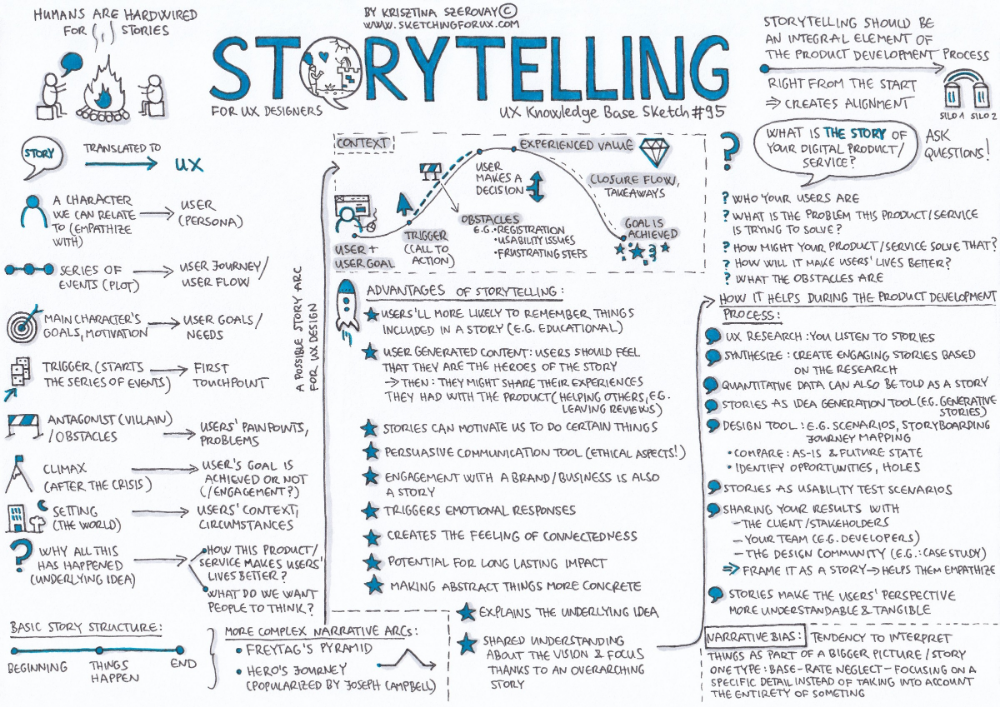 HUMANS ARE HARDWIRED
FOR STORIES
BY KRISZTINA SZEROVAY ©
WWW.SKETCHINGFORUX.COM
STORYTELLING
FOR UX DESIGNERS
UX Knowledge Base Sketch #95
STORYTELLING SHOULD BE
AN INTEGRAL ELEMENT OF
THE PRODUCT DEVELOPMENT PROCESS
RIGHT FROM THE START
⇒ CREATES ALIGNMENT
SILO 1 SILO 2
STORY
TRANSLATED TO
UX
A CHARACTER
WE CAN RELATE
TO (EMPATHIZE
WITH)
USER
(PERSONA)
SERIES OF
EVENTS (PLOT)
USER JOURNEY/
USER FLOW
MAIN CHARACTER'S
GOALS, MOTIVATION
USER GOALS/
NEEDS
TRIGGER (STARTS
THE SERIES OF EVENTS)
FIRST
TOUCHPOINT
ANTAGONIST (VILLAIN)
/OBSTACLES
USERS' PAIN POINTS,
PROBLEMS
CLIMAX
(AFTER THE CRISIS)
USER'S GOAL IS
ACHIEVED OR NOT
(/ENGAGEMENT?)
SETTING
(THE WORLD)
USERS' CONTEXT,
CIRCUMSTANCES
? WHY ALL THIS
HAS HAPPENED
(UNDERLYING IDEA)
HOW THIS PRODUCT/
SERVICE MAKES USERS'
LIVES BETTER?
WHAT DO WE WANT
PEOPLE TO THINK?
BASIC STORY STRUCTURE:
BEGINNING
THINGS
HAPPEN
END
MORE COMPLEX NARRATIVE ARCs:
• FREYTAG'S PYRAMID
• HERO'S JOURNEY
(POPULARIZED BY JOSEPH CAMPBELL)
A POSSIBLE STORY ARC
FOR UX DESIGN
CONTEXT
USER +
USER GOAL
TRIGGER
(CALL TO
ACTION)
OBSTACLES
E.G. • REGISTRATION
• USABILITY ISSUES
• FRUSTRATING STEPS
USER
MAKES A
DECISION
EXPERIENCED VALUE
CLOSURE FLOW,
TAKEAWAYS
GOAL IS
ACHIEVED
ADVANTAGES OF STORYTELLING:
USERS'LL MORE LIKELY TO REMEMBER THINGS
INCLUDED IN A STORY (E.G. EDUCATIONAL)
USER GENERATED CONTENT: USERS SHOULD FEEL
THAT THEY ARE THE HEROES OF THE STORY
→ THEN: THEY MIGHT SHARE THEIR EXPERIENCES
THEY HAD WITH THE PRODUCT (HELPING OTHERS, E.G.
LEAVING REVIEWS)
STORIES CAN MOTIVATE US TO DO CERTAIN THINGS
PERSUASIVE COMMUNICATION TOOL (ETHICAL ASPECTS!)
ENGAGEMENT WITH A BRAND/BUSINESS IS ALSO
A STORY
TRIGGERS EMOTIONAL RESPONSES
CREATES THE FEELING OF CONNECTEDNESS
POTENTIAL FOR LONG LASTING IMPACT
MAKING ABSTRACT THINGS MORE CONCRETE
EXPLAINS THE UNDERLYING IDEA
SHARED UNDERSTANDING
ABOUT THE VISION & FOCUS
THANKS TO AN OVERARCHING
STORY
?
WHAT IS THE STORY OF
YOUR DIGITAL PRODUCT/
SERVICE?
ASK
QUESTIONS!
? WHO YOUR USERS ARE
? WHAT IS THE PROBLEM THIS PRODUCT/SERVICE
IS TRYING TO SOLVE?
? HOW MIGHT YOUR PRODUCT/SERVICE SOLVE THAT?
? HOW WILL IT MAKE USERS' LIVES BETTER?
? WHAT THE OBSTACLES ARE
HOW IT HELPS DURING THE PRODUCT DEVELOPMENT
PROCESS:
UX RESEARCH: YOU LISTEN TO STORIES
SYNTHESIZE: CREATE ENGAGING STORIES BASED
ON THE RESEARCH
QUANTITATIVE DATA CAN ALSO BE TOLD AS A STORY
STORIES AS IDEA GENERATION TOOL (E.G. GENERATIVE
STORIES)
DESIGN TOOL: E.G. SCENARIOS, STORYBOARDING
JOURNEY MAPPING
• COMPARE: AS-IS & FUTURE STATE
• IDENTIFY OPPORTUNITIES, HOLES
STORIES AS USABILITY TEST SCENARIOS
SHARING YOUR RESULTS WITH
– THE CLIENT/STAKEHOLDERS
– YOUR TEAM (E.G. DEVELOPERS)
– THE DESIGN COMMUNITY (E.G.: CASE STUDY)
⇒ FRAME IT AS A STORY → HELPS THEM EMPATHIZE
STORIES MAKE THE USERS' PERSPECTIVE
MORE UNDERSTANDABLE & TANGIBLE
NARRATIVE BIAS: TENDENCY TO INTERPRET
THINGS AS PART OF A BIGGER PICTURE/STORY
ONE TYPE: BASE-RATE NEGLECT – FOCUSING ON A
SPECIFIC DETAIL INSTEAD OF TAKING INTO ACCOUNT
THE ENTIRETY OF SOMETING